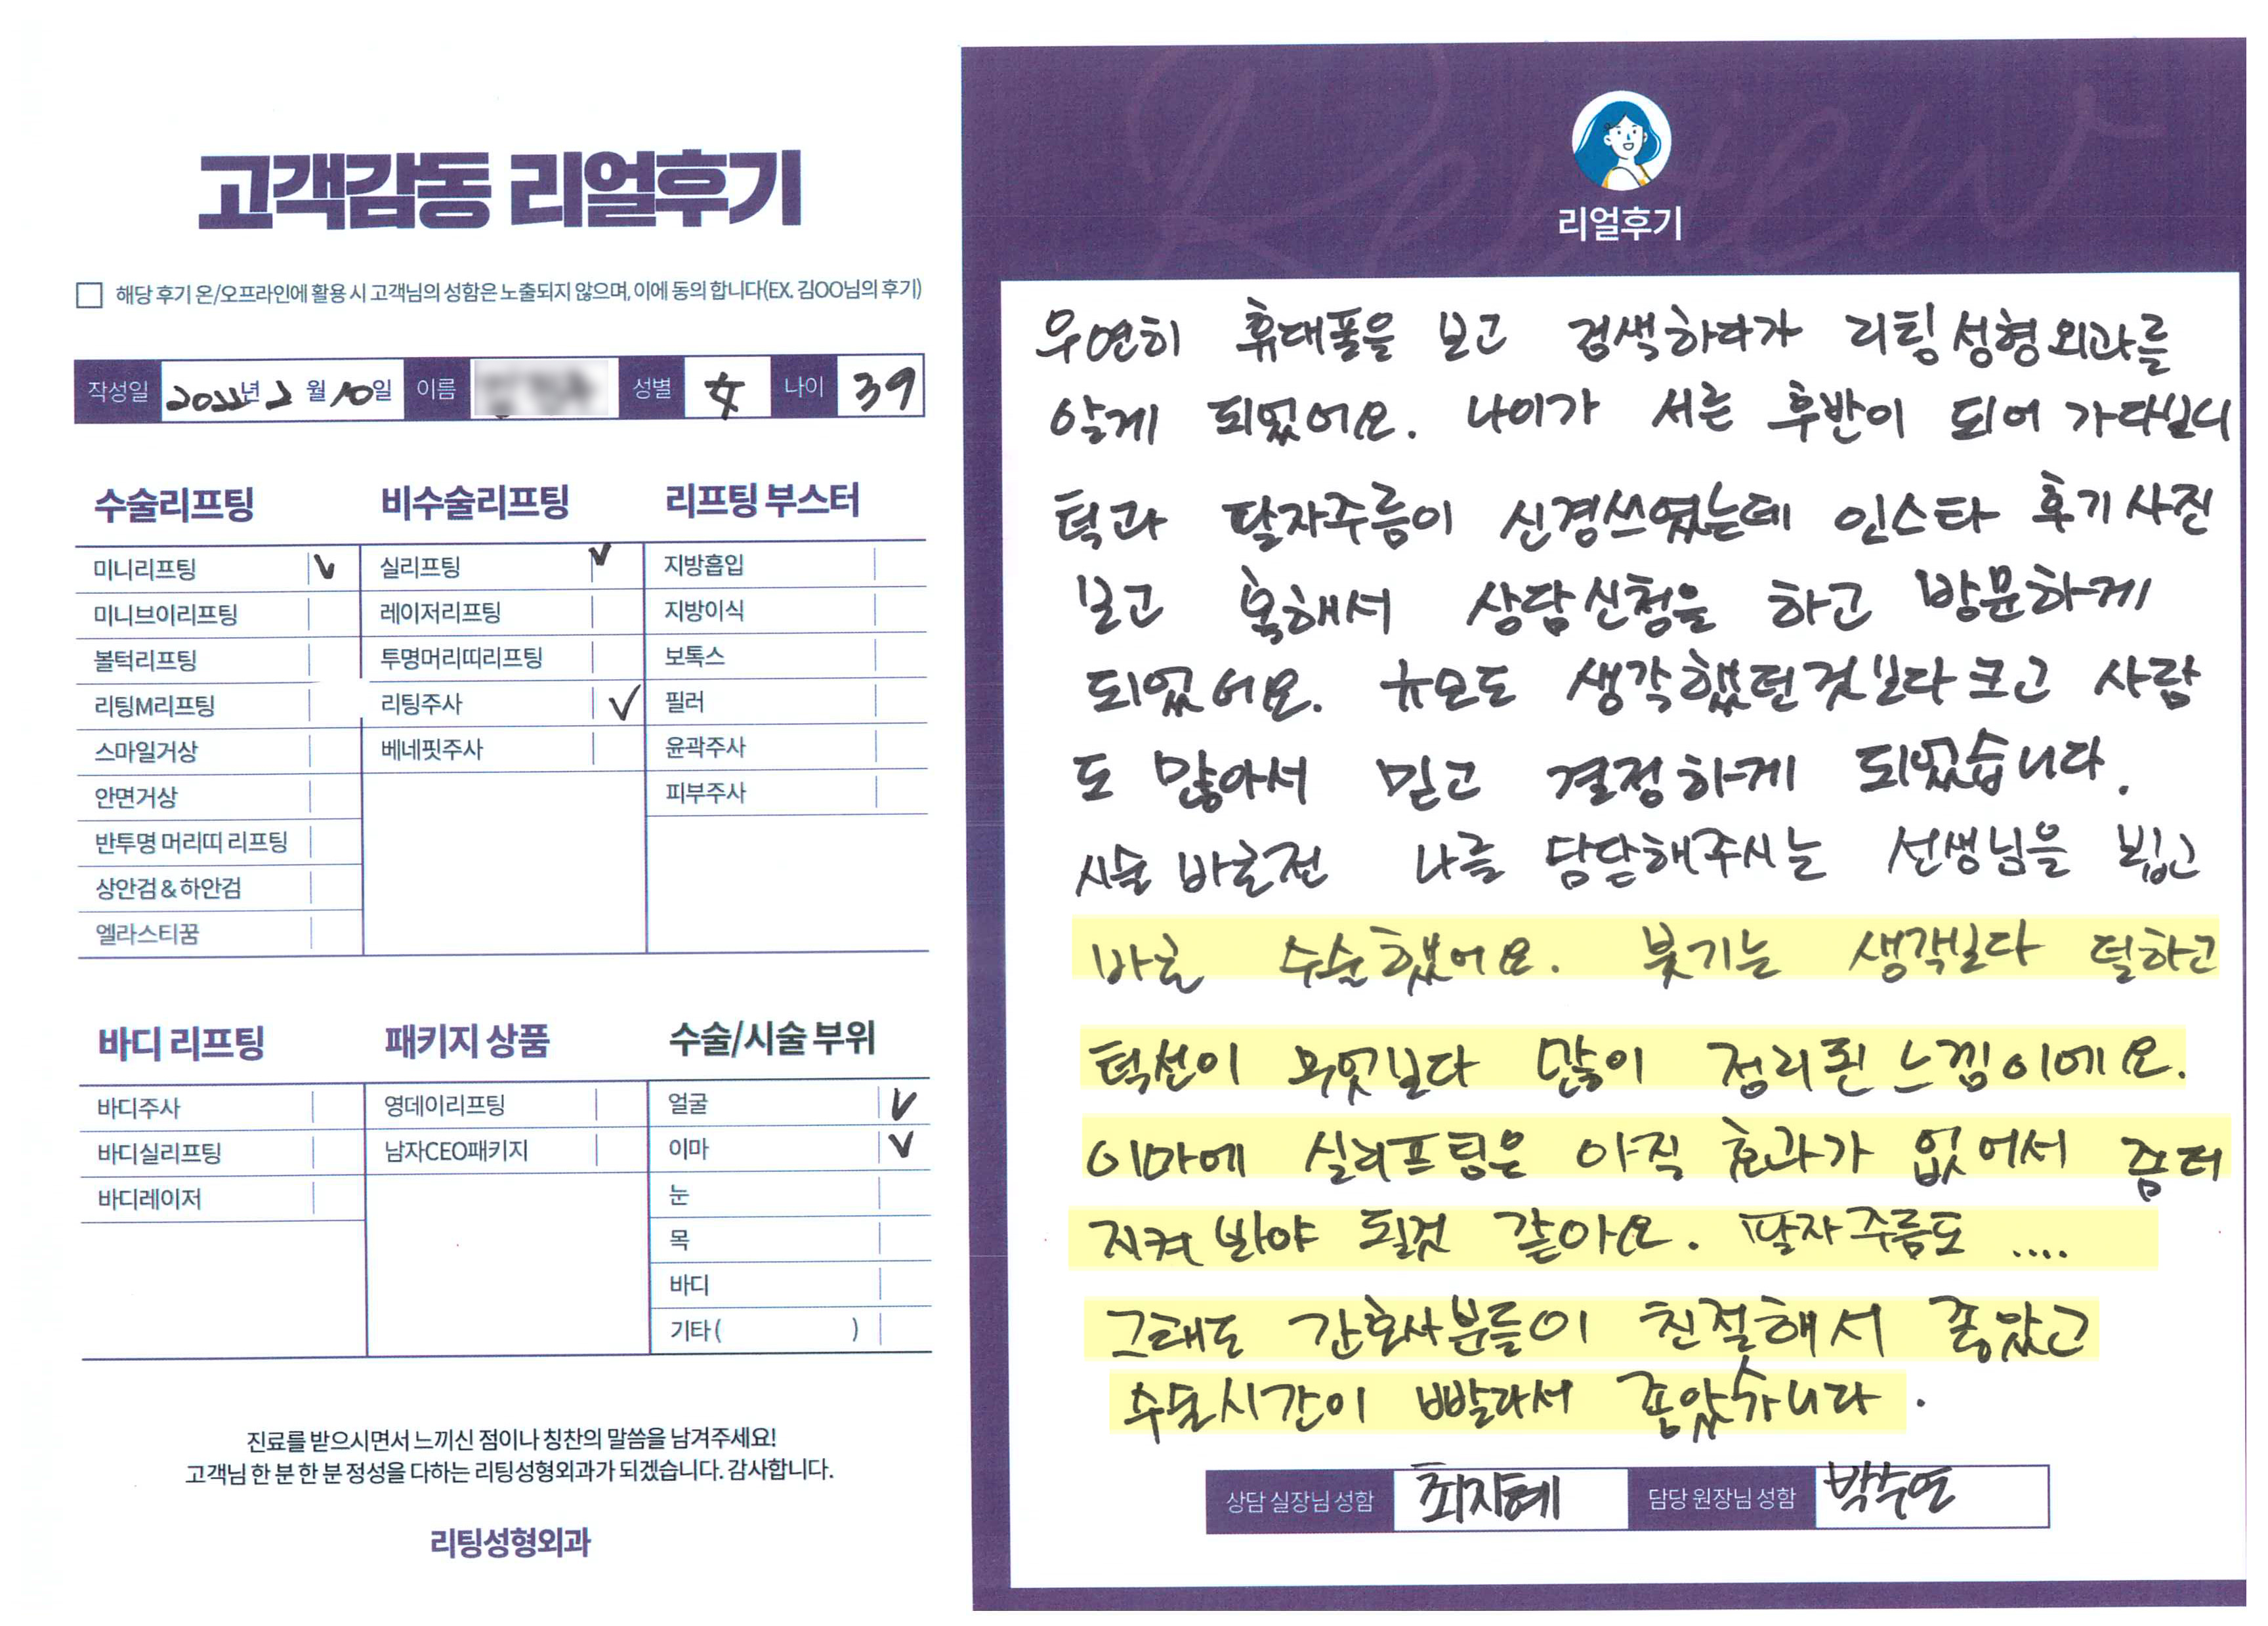 고객감동 리얼후기
해당 후기 온/오프라인에 활용 시 고객님의 성함은 노출되지 않으며, 이에 동의 합니다(EX. 김OO님의 후기)
작성일 2022년 2월 10일 이름 성별 女 나이 39
수술리프팅
미니리프팅 ✓
미니브이리프팅
볼턱리프팅
리팅M리프팅
스마일거상
안면거상
반투명 머리띠 리프팅
상안검 & 하안검
엘라스티꿈
비수술리프팅
실리프팅 ✓
레이저리프팅
투명머리띠리프팅
리팅주사 ✓
베네핏주사
리프팅 부스터
지방흡입
지방이식
보톡스
필러
윤곽주사
피부주사
바디 리프팅
바디주사
바디실리프팅
바디레이저
패키지 상품
영데이리프팅
남자CEO패키지
수술/시술 부위
얼굴 ✓
이마 ✓
눈
목
바디
기타 ( )
진료를 받으시면서 느끼신 점이나 칭찬의 말씀을 남겨주세요!
고객님 한 분 한 분 정성을 다하는 리팅성형외과가 되겠습니다. 감사합니다.
리팅성형외과
Review
리얼후기
우연히 휴대폴을 보고 검색하다가 리팅성형외과를
알게 되었어요. 나이가 서른 후반이 되어 가다보니
턱과 팔자주름이 신경쓰였는데 인스타 후기사진
보고 혹해서 상담신청을 하고 방문하게
되었어요. 규모도 생각했던것보다 크고 사람
도 많아서 믿고 결정하게 되었습니다.
시술 바로전 나를 담당해주시는 선생님을 뵙고
바로 수술했어요. 붓기는 생각보다 덜하고
턱선이 무엇보다 많이 정리된 느낌이에요.
이마에 실리프팅은 아직 효과가 없어서 좀더
지켜봐야 될것 같아요. 팔자주름도 ....
그래도 간호사분들이 친절해서 좋았고
수술시간이 빨라서 좋았습니다.
상담 실장님 성함 최지혜 담당 원장님 성함 박수연